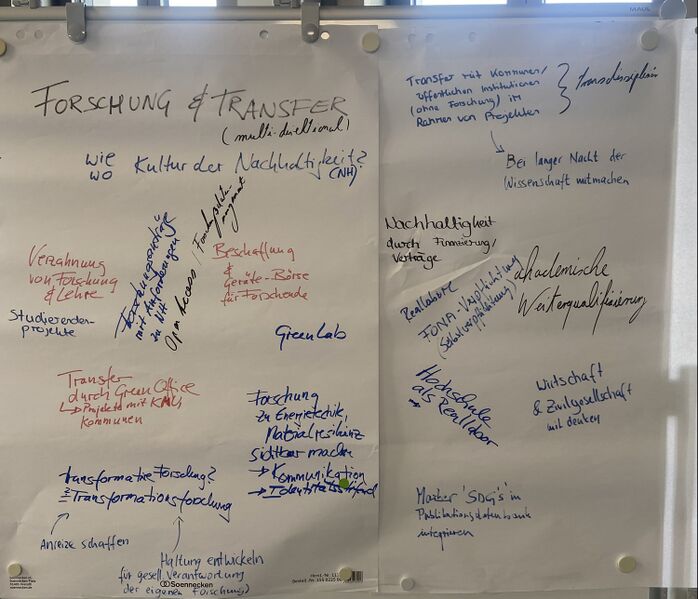 FORSCHUNG & TRANSFER
(multi-direktional)
wie
wo
Kultur der Nachhaltigkeit?
(NH)
Verzahnung
von Forschung
& Lehre
Studierenden-
projekte
Forschungsanträge
mit Anforderungen
zu NH
Open Access / Forschungsdaten-
management
Beschaffung
&
Geräte-Börse
für Forschende
GreenLab
Transfer
durch Green Office
↳ Projekte mit KMU
Kommunen
Forschung
zu Energietechnik,
Materialresilienz
sichtbar machen
→ Kommunikation
→ Identitätsstiftend
transformative Forschung?
Transformationsforschung
Anreize schaffen
Haltung entwickeln
für gesell. Verantwortung
der eigenen Forschung)
Soennecken
Transfer mit Kommunen/
öffentlichen Institutionen
(ohne Forschung) im
Rahmen von Projekten
Bei langer Nacht der
Wissenschaft mitmachen
Nachhaltigkeit
durch Finanzierung/
Verträge
Reallabore
FONA-Verpflichtung
(Selbstverpflichtung)
akademische
Weiterqualifizierung
Hochschule
als Reallabor
Wirtschaft
& Zivilgesellschaft
mit denken
Marker 'SDG's' in
Publikationsdatenbank
integrieren
MAUL